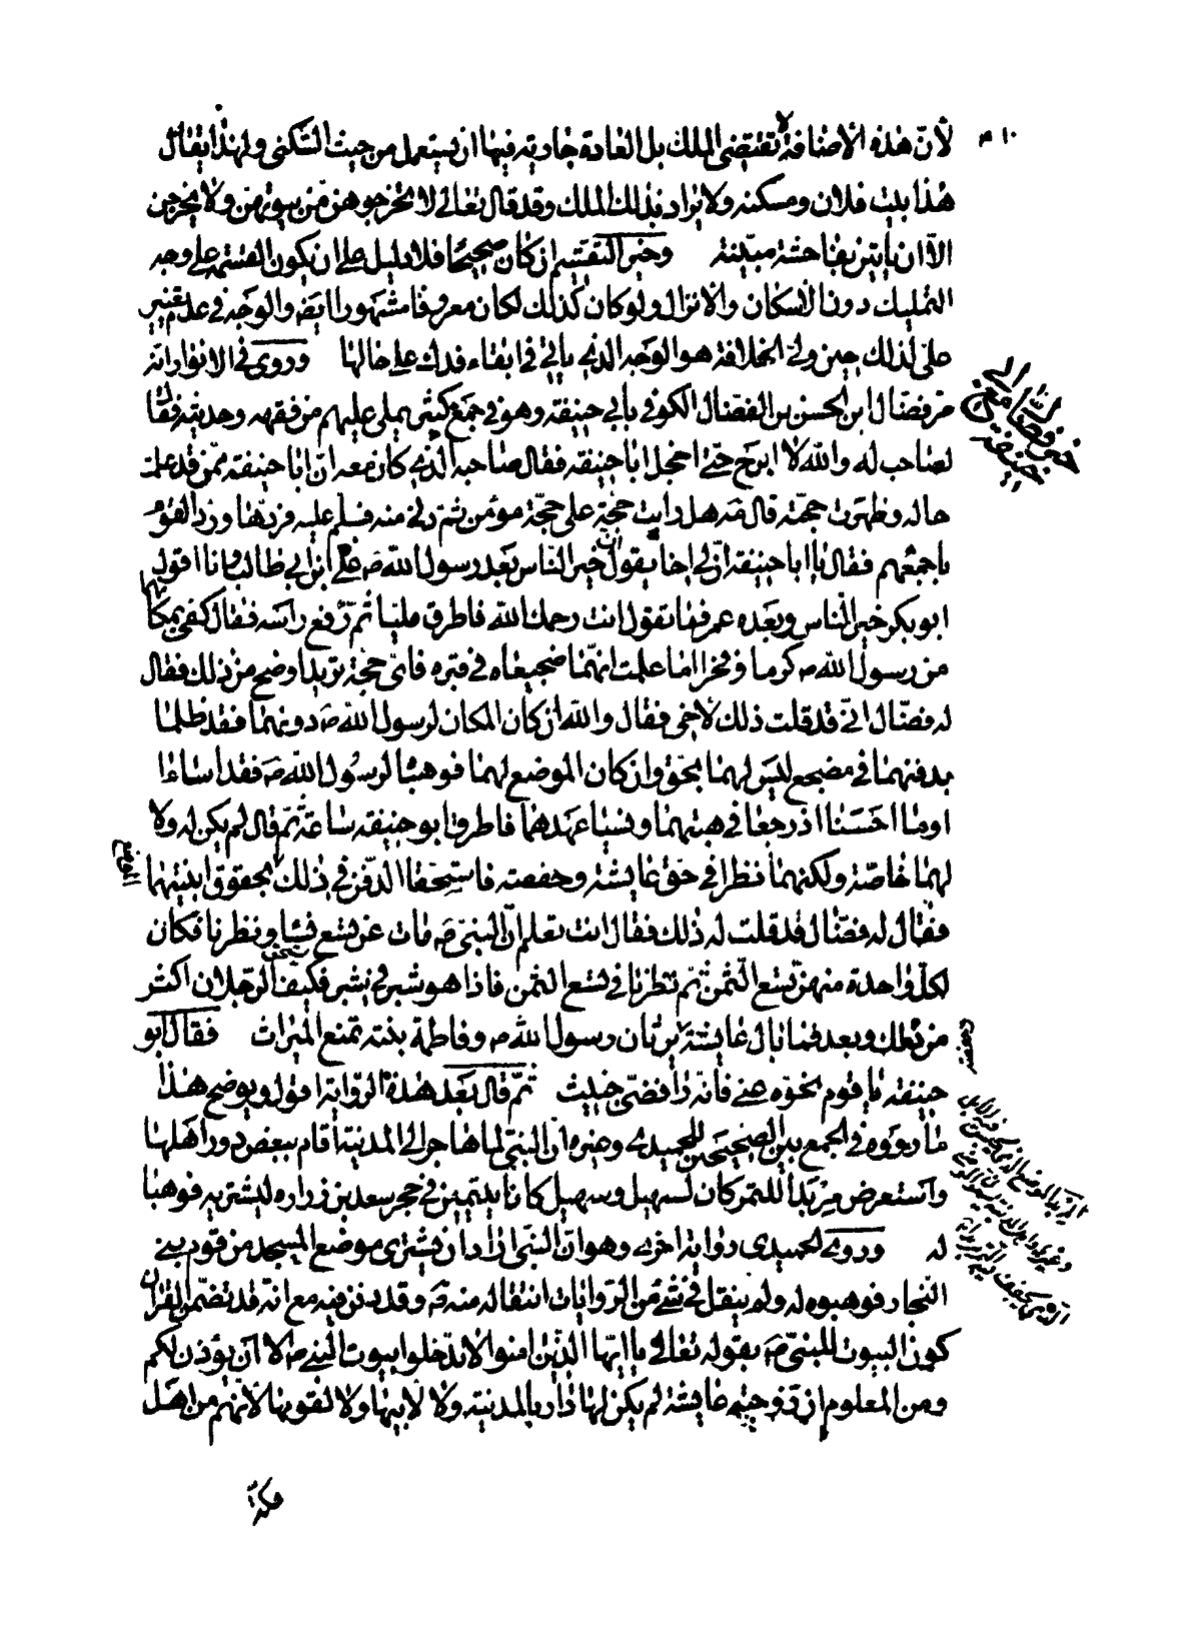 لأنّ هذه الاضافة لا تقتضى الملك بل العادة جارية فيها ان يستعمل من حيث السّكنى ولهذا يقال
هذا بيت فلان ومسكنه ولا يراد بذلك الملك وقد قال تعالى لا تخرجوهنّ من بيوتهنّ ولا يخرجن
الاّ ان ياتين بفاحشة مبيّنة وخبر التقسيم ان كان صحيحًا فلا دليل على ان يكون القسمة على وجه
التمليك دون الاسكان والانزال ولو كان كذلك لكان معروفا مشهورا ايضا والوجه فى عدم تغيير
علىّ لذلك حين ولى الخلافة هو الوجه الذى ياتى فى ابقاء فدك على حالها وروى فى الانوار انه
مرّ فضّال ابن الحسن بن الفضّال الكوفى بابى حنيفة وهو فى جمع كثير يملى عليهم من فقهه وحديثه فقال
لصاحب له والله لا ابرح حتى اخجل ابا حنيفه فقال صاحبه الذى كان معه ان ابا حنيفة ممّن قد علت
حاله وظهرت حجّته قال مه هل رايت حجّة علت على حجّة مؤمن ثم دنى منه فسلم عليه فردّها وردّ القوم
باجمعهم فقال يا ابا حنيفة انّ لى اخا يقول ان خير الناس بعد رسول الله ص علىّ ابن ابى طالب وانا اقول
ابو بكر خير الناس وبعده عمر فما تقول انت رحمك الله فاطرق مليّا ثمّ رفع راسه فقال كفى بمكانهما
من رسول الله ص كرما وفخرا اما علمت انهّما ضجيعاه فى قبره فاىّ حجّة تريد اوضح من ذلك فقال
له فضّال انّى قد قلت ذلك لاخى فقال والله ان كان المكان لرسول الله ص دونهما فقد ظلما
بدفنهما فى مضجع ليس لهما بحقّ وان كان الموضع لهما فوهبا لرسول الله ص فقد اساءا
وما احسنا اذ رجعا فى هبتهما ونسيا عهدهما فاطرق ابو حنيفه ساعة ثمّ قال لم يكن له ولا
لهما خاصّة ولكنهما نظرا فى حق عايشة وحفصه فاستحقا الدفن فى ذلك الموضع بحقوق ابنتيهما
فقال له فضّال قد قلت له ذلك فقال انت تعلم انّ النبىّ ص مات عن تسع نساء ونظرنا فكان
لكلّ واحدة منهنّ تسع الثّمن ثمّ نظرنا فى تسع الثمن فاذا هو شبر فى شبر فكيف يستحق الرّجلان اكثر
من ذلك وبعد فما بال عايشة ترثان رسول الله ص وفاطمة بنته تمنع الميراث فقال ابو
حنيفه يا قوم نحّوه عنى فانّه رافضىّ خبيث ثمّ قال بعد هذه الرّواية اقول ويوضح هذا
ما رووه فى الجمع بين الصحيحين للحميدى وغيره انّ النبى لما هاجر الى المدينة اقام ببعض دور اهلها
واستعرض مربدا للتمر كان لسهيل وسهيل كانا يتيمين فى حجر سعد بن زراره ليشتريه فوهبا
له وروى الحميدى رواية اخرى وهو انّ النبى اراد ان يشترى موضع المسجد من قوم بنى
النّجار فوهبوه له ولم ينقل فى شئ من الرّوايات انتقاله منه ص وقد دفن فيه مع انّه قد تضمّن القران
كون البيوت للنبىّ ص بقوله تعالى يا ايّها الّذين امنوا لا تدخلوا بيوت النبى ص الا ان يؤذن لكم
ومن المعلوم ان زوجته عايشة لم يكن لها دار بالمدينة ولا لابيها ولا لقومها لانهم من اهل
مكة